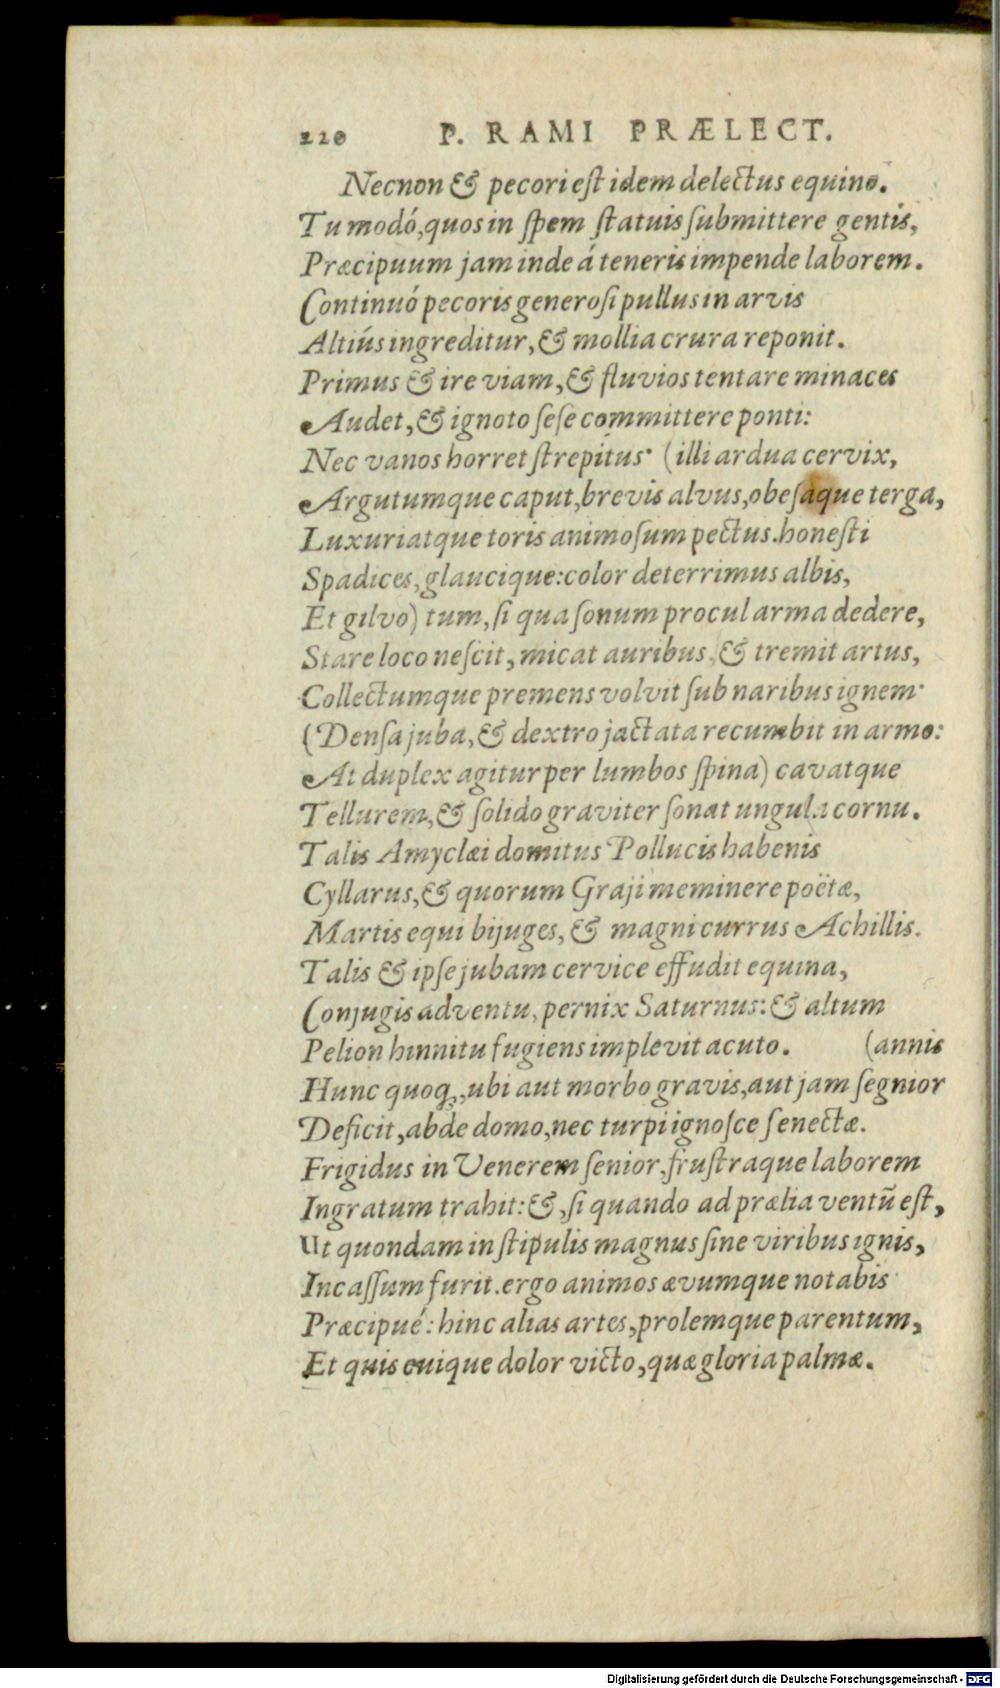 220 P. RAMI PRÆLECT.
Necnon & pecori eſt idem delectus equino.
Tu modó, quos in ſpem ſtatuis ſubmittere gentis,
Præcipuum jam inde á teneris impende laborem.
Continuó pecoris generoſi pullus in arvis
Altiús ingreditur, & mollia crura reponit.
Primus & ire viam, & fluvios tentare minaces
Audet, & ignoto ſeſe committere ponti:
Nec vanos horret ſtrepitus· (illi ardua cervix,
Argutumque caput, brevis alvus, obeſaque terga,
Luxuriatque toris animoſum pectus. honeſti
Spadices, glaucique: color deterrimus albis,
Et gilvo) tum, ſi qua ſonum procul arma dedere,
Stare loco neſcit, micat auribus, & tremit artus,
Collectumque premens volvit ſub naribus ignem·
(Denſa juba, & dextro jactata recumbit in armo:
At duplex agitur per lumbos ſpina) cavatque
Tellurem, & ſolido graviter ſonat ungula cornu.
Talis Amyclæi domitus Pollucis habenis
Cyllarus, & quorum Graji meminere poëtæ,
Martis equi bijuges, & magni currus Achillis.
Talis & ipſe jubam cervice effudit equina,
Conjugis adventu, pernix Saturnus: & altum
Pelion hinnitu fugiens implevit acuto. (annis
Hunc quoq;, ubi aut morbo gravis, aut jam ſegnior
Deficit, abde domo, nec turpi ignoſce ſenectæ.
Frigidus in Venerem ſenior, fruſtraque laborem
Ingratum trahit: &, ſi quando ad prælia ventũ eſt,
Ut quondam in ſtipulis magnus ſine viribus ignis,
Incaſſum furit. ergo animos ævumque notabis
Præcipué: hinc alias artes, prolemque parentum,
Et quis cuique dolor victo, quæ gloria palmæ.
Digitalisierung gefördert durch die Deutsche Forschungsgemeinschaft - DFG